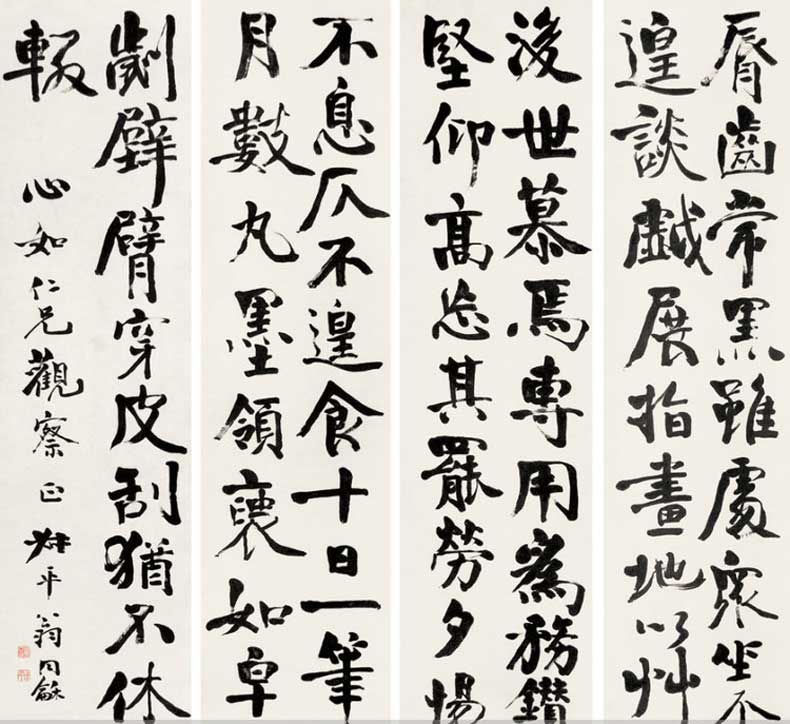 脣齒常黑雖處眾坐不
遑談戲展指畫地以艸
後世慕焉專用為務鑽
堅仰高忘其罷勞夕惕
不息仄不遑食十日一筆
月數丸墨領褏如皁
劌壁臂穿皮刮猶不休
輟
心如仁兄觀察正 叔平翁同龢